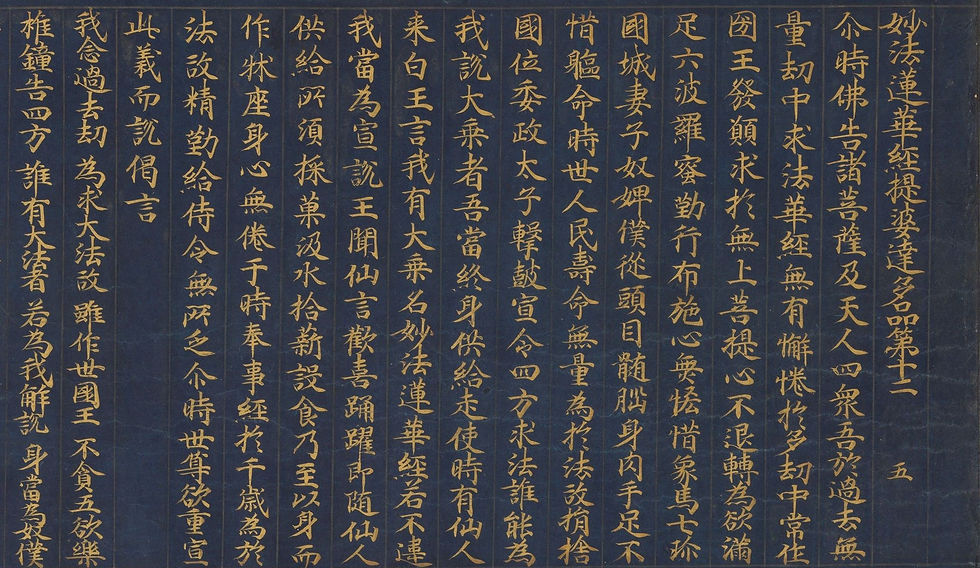 妙法蓮華經提婆達多品第十二 五
尒時佛告諸菩薩及天人四衆吾於過去無
量劫中求法華經無有懈惓於多劫中常作
國王發願求於無上菩提心不退轉為欲滿
足六波羅蜜勤行布施心無悋惜象馬七珎
國城妻子奴婢僕從頭目髄腦身肉手足不
惜軀命時世人民壽命無量為於法故捐捨
國位委政太子擊鼓宣令四方求法誰能為
我說大乗者吾當終身供給走使時有仙人
来白王言我有大乗名妙法蓮華經若不違
我當為宣說王聞仙言歡喜踊躍即随仙人
供給所須採菓汲水拾薪設食乃至以身而
作牀座身心無倦于時奉事經於千歳為於
法故精勤給侍令無所乏尒時世尊欲重宣
此義而說偈言
我念過去劫 為求大法故 雖作世國王 不貪五欲樂
椎鐘告四方 誰有大法者 若為我解說 身當為奴僕